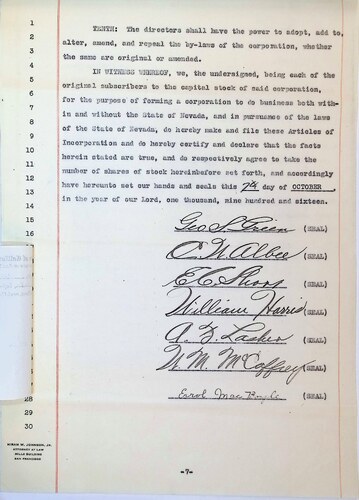 1
2
3
4
5
6
7
8
9
10
11
12
13
14
15
16
TENTH: The directors shall have the power to adopt, add to,
alter, amend, and repeal the by-laws of the corporation, whether
the same are original or amended.
IN WITNESS WHEREOF, we, the undersigned, being each of the
original subscribers to the capital stock of said corporation,
for the purpose of forming a corporation to do business both with-
in and without the State of Nevada, and in pursuance of the laws
of the State of Nevada, do hereby make and file these Articles of
Incorporation and do hereby certify and declare that the facts
herein stated are true, and do respectively agree to take the
number of shares of stock hereinbefore set forth, and accordingly
have hereunto set our hands and seals this 7th day of OCTOBER
in the year of our Lord, one thousand, nine hundred and sixteen.
Geo S. Green (SEAL)
C. W. Albee (SEAL)
(SEAL)
William Harris (SEAL)
(SEAL)
W. M. McCaffrey (SEAL)
Errol MacBoyle (SEAL)
28
29
30
HIRAM W. JOHNSON, JR.
ATTORNEY AT LAW
MILLS BUILDING
SAN FRANCISCO
-7-